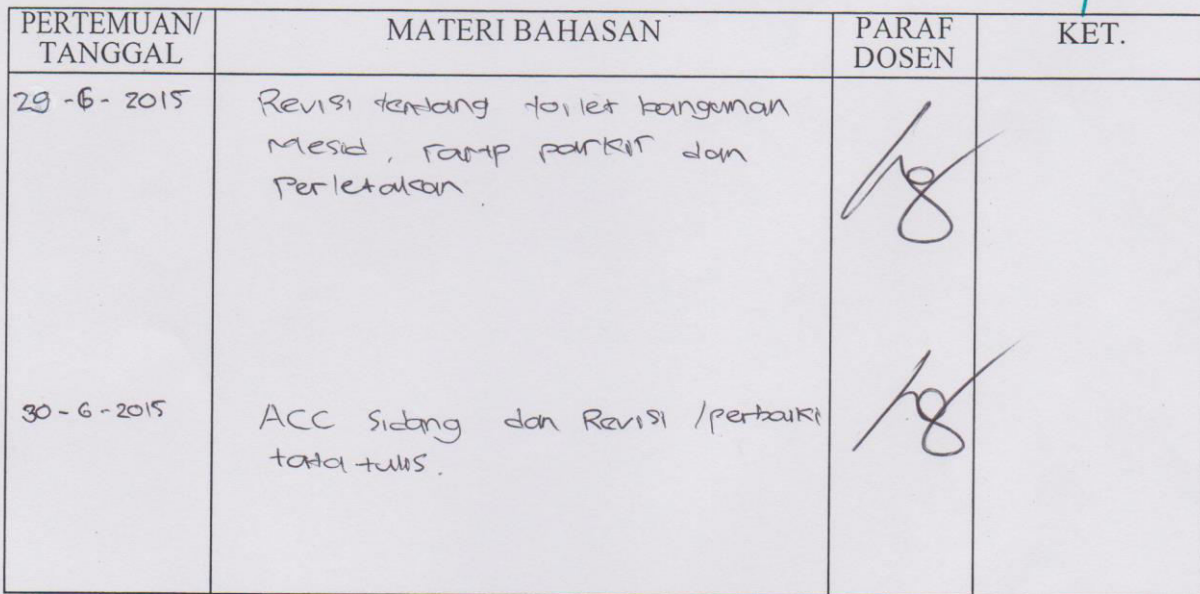 PERTEMUAN/
TANGGAL
MATERI BAHASAN
PARAF
DOSEN
KET.
29 - 6 - 2015
Revisi tentang toilet bangunan
Mesid, ramp parkir dan
Perletakan
30 - 6 - 2015
ACC Sidang dan Revisi /perbaiki
tata tulis.